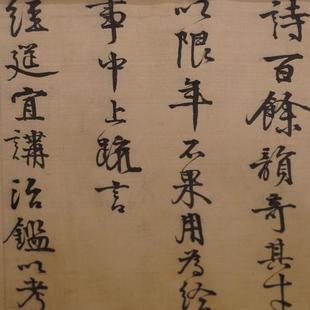 詩百餘韻奇其才
以限年不果用為給
事中上疏言
經筵宜講治鑑以考